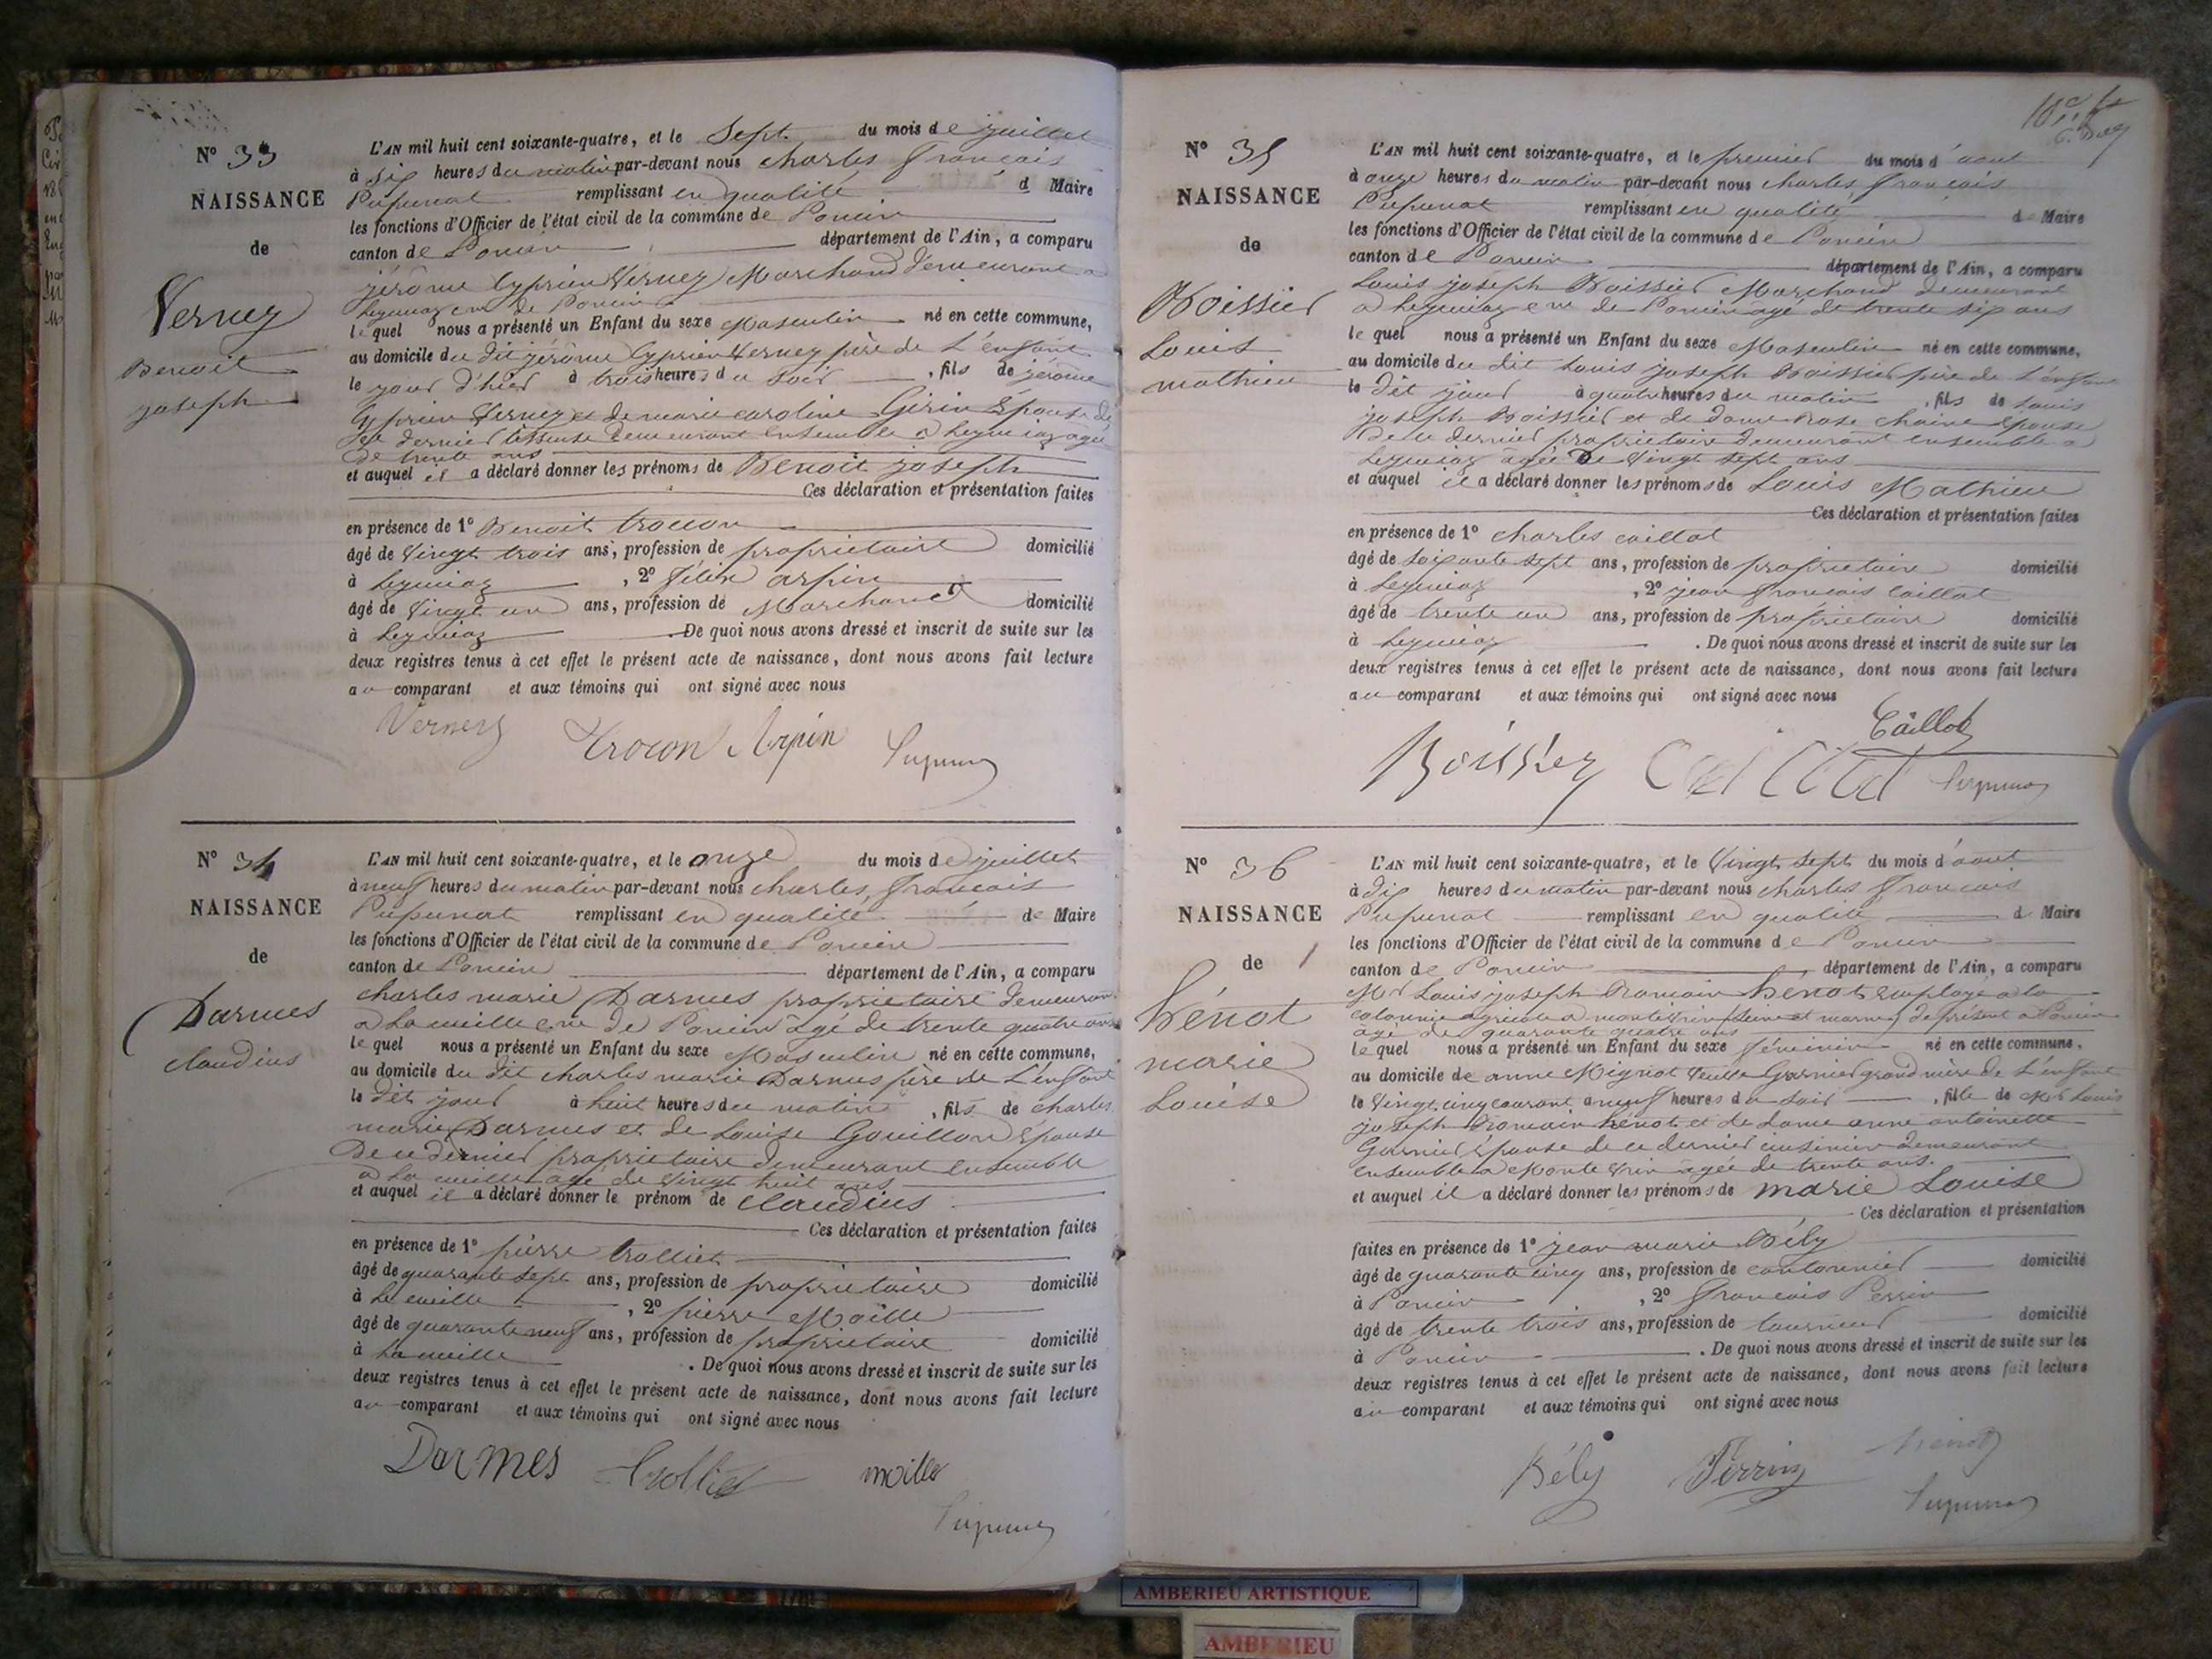 N° 33
NAISSANCE
de
Verney
Benoit
joseph
L'AN mil huit cent soixante-quatre, et le Sept du mois de juillet
à six heures du matin par-devant nous charles françois
Pupunat remplissant en qualité d Maire
les fonctions d'Officier de l'état civil de la commune de Poncin
canton de Poncin département de l'Ain, a comparu
jérôme Cyprien Verney Marchand demeurant a
Leymiaz cne de Poncin
lequel nous a présenté un Enfant du sexe Masculin né en cette commune,
au domicile du dit jérôme Cyprien Verney père de L'enfant
le jour d'hier à trois heures du soir, fils de jérôme
Cyprien Verney et de marie caroline Girin Epouse de
ce dernier demeurant ensemble a Leymiaz agée
de trente ans
et auquel il a déclaré donner les prénoms de Benoit joseph
Ces déclaration et présentation faites
en présence de 1° Benoit trocon
âgé de Vingt trois ans, profession de proprietaire domicilié
à Leymiaz, 2° félix arpin
âgé de Vingt un ans, profession de Marchand domicilié
à Leymiaz. De quoi nous avons dressé et inscrit de suite sur les
deux registres tenus à cet effet le présent acte de naissance, dont nous avons fait lecture
au comparant et aux témoins qui ont signé avec nous
Verney Trocon Arpin Pupunat
N° 34
NAISSANCE
de
Darmes
claudius
L'AN mil huit cent soixante-quatre, et le onze du mois de juillet
à neuf heures du matin par-devant nous charles françois
Pupunat remplissant en qualité de Maire
les fonctions d'Officier de l'état civil de la commune de Poncin
canton de Poncin département de l'Ain, a comparu
charles marie Darmes proprietaire demeurant
a La cueille cne de Poncin âgé de trente quatre ans
lequel nous a présenté un Enfant du sexe Masculin né en cette commune,
au domicile du dit charles marie Darmes père de L'enfant
le dit jour à huit heures du matin, fils de charles
marie Darmes et de Louise Gouillon Epouse
De ce dernier proprietaire demeurant ensemble
a La cueille âgé de Vingt huit ans
et auquel il a déclaré donner le prénom de claudius
Ces déclaration et présentation faites
en présence de 1° pierre trolliet
âgé de quarante sept ans, profession de proprietaire domicilié
à La cueille, 2° pierre Moille
âgé de quarante neuf ans, profession de proprietaire domicilié
à La cueille. De quoi nous avons dressé et inscrit de suite sur les
deux registres tenus à cet effet le présent acte de naissance, dont nous avons fait lecture
au comparant et aux témoins qui ont signé avec nous
Darmes Trolliet moille
Pupunat
N° 35
NAISSANCE
de
Boissier
Louis
mathieu
L'AN mil huit cent soixante-quatre, et le premier du mois d'aout
à onze heures du matin par-devant nous charles françois
Pupunat remplissant en qualité de Maire
les fonctions d'Officier de l'état civil de la commune de Poncin
canton de Poncin département de l'Ain, a comparu
Louis joseph Boissier Marchand demeurant
a Leymiaz cne de Poncin âgé de trente six ans
lequel nous a présenté un Enfant du sexe Masculin né en cette commune,
au domicile du dit Louis joseph Boissier père de L'enfant
le dit jour à quatre heures du matin, fils de Louis
joseph Boissier et de dame Rose chaine Epouse
de ce dernier proprietaire demeurant ensemble a
Leymiaz âgée De Vingt sept ans
et auquel il a déclaré donner les prénoms de Louis Mathieu
Ces déclaration et présentation faites
en présence de 1° charles caillat
âgé de soixante sept ans, profession de proprietaire domicilié
à Leymiaz, 2° jean françois caillat
âgé de trente un ans, profession de proprietaire domicilié
à Leymiaz. De quoi nous avons dressé et inscrit de suite sur les
deux registres tenus à cet effet le présent acte de naissance, dont nous avons fait lecture
au comparant et aux témoins qui ont signé avec nous
Caillat
Boissier Caillat Pupunat
N° 36
NAISSANCE
de
hénot
marie
Louise
L'AN mil huit cent soixante-quatre, et le Vingt sept du mois d'aout
à dix heures du matin par-devant nous charles françois
Pupunat remplissant en qualité d Maire
les fonctions d'Officier de l'état civil de la commune de Poncin
canton de Poncin département de l'Ain, a comparu
Mr Louis joseph Romain hénot employé a la
colonnie agricole a (seine et marne) de présent a Poncin
âgé de quarante quatre ans
lequel nous a présenté un Enfant du sexe féminin né en cette commune,
au domicile de anne Mignot Veuve Garnier grand mère de L'enfant
le Vingt cinq courant a neuf heures du soir, fille de Mr Louis
joseph Romain hénot et de dame anne antoinette
Garnier Epouse de ce dernier demeurant
ensemble a âgée de trente ans.
et auquel il a déclaré donner les prénoms de marie Louise
Ces déclaration et présentation
faites en présence de 1° jean marie Bély
âgé de quarante cinq ans, profession de cantonnier domicilié
à Poncin, 2° françois Perrin
âgé de trente trois ans, profession de tourneur domicilié
à Poncin. De quoi nous avons dressé et inscrit de suite sur les
deux registres tenus à cet effet le présent acte de naissance, dont nous avons fait lecture
au comparant et aux témoins qui ont signé avec nous
Bély Perrin hénot
Pupunat
AMBERIEU ARTISTIQUE
AMBERIEU